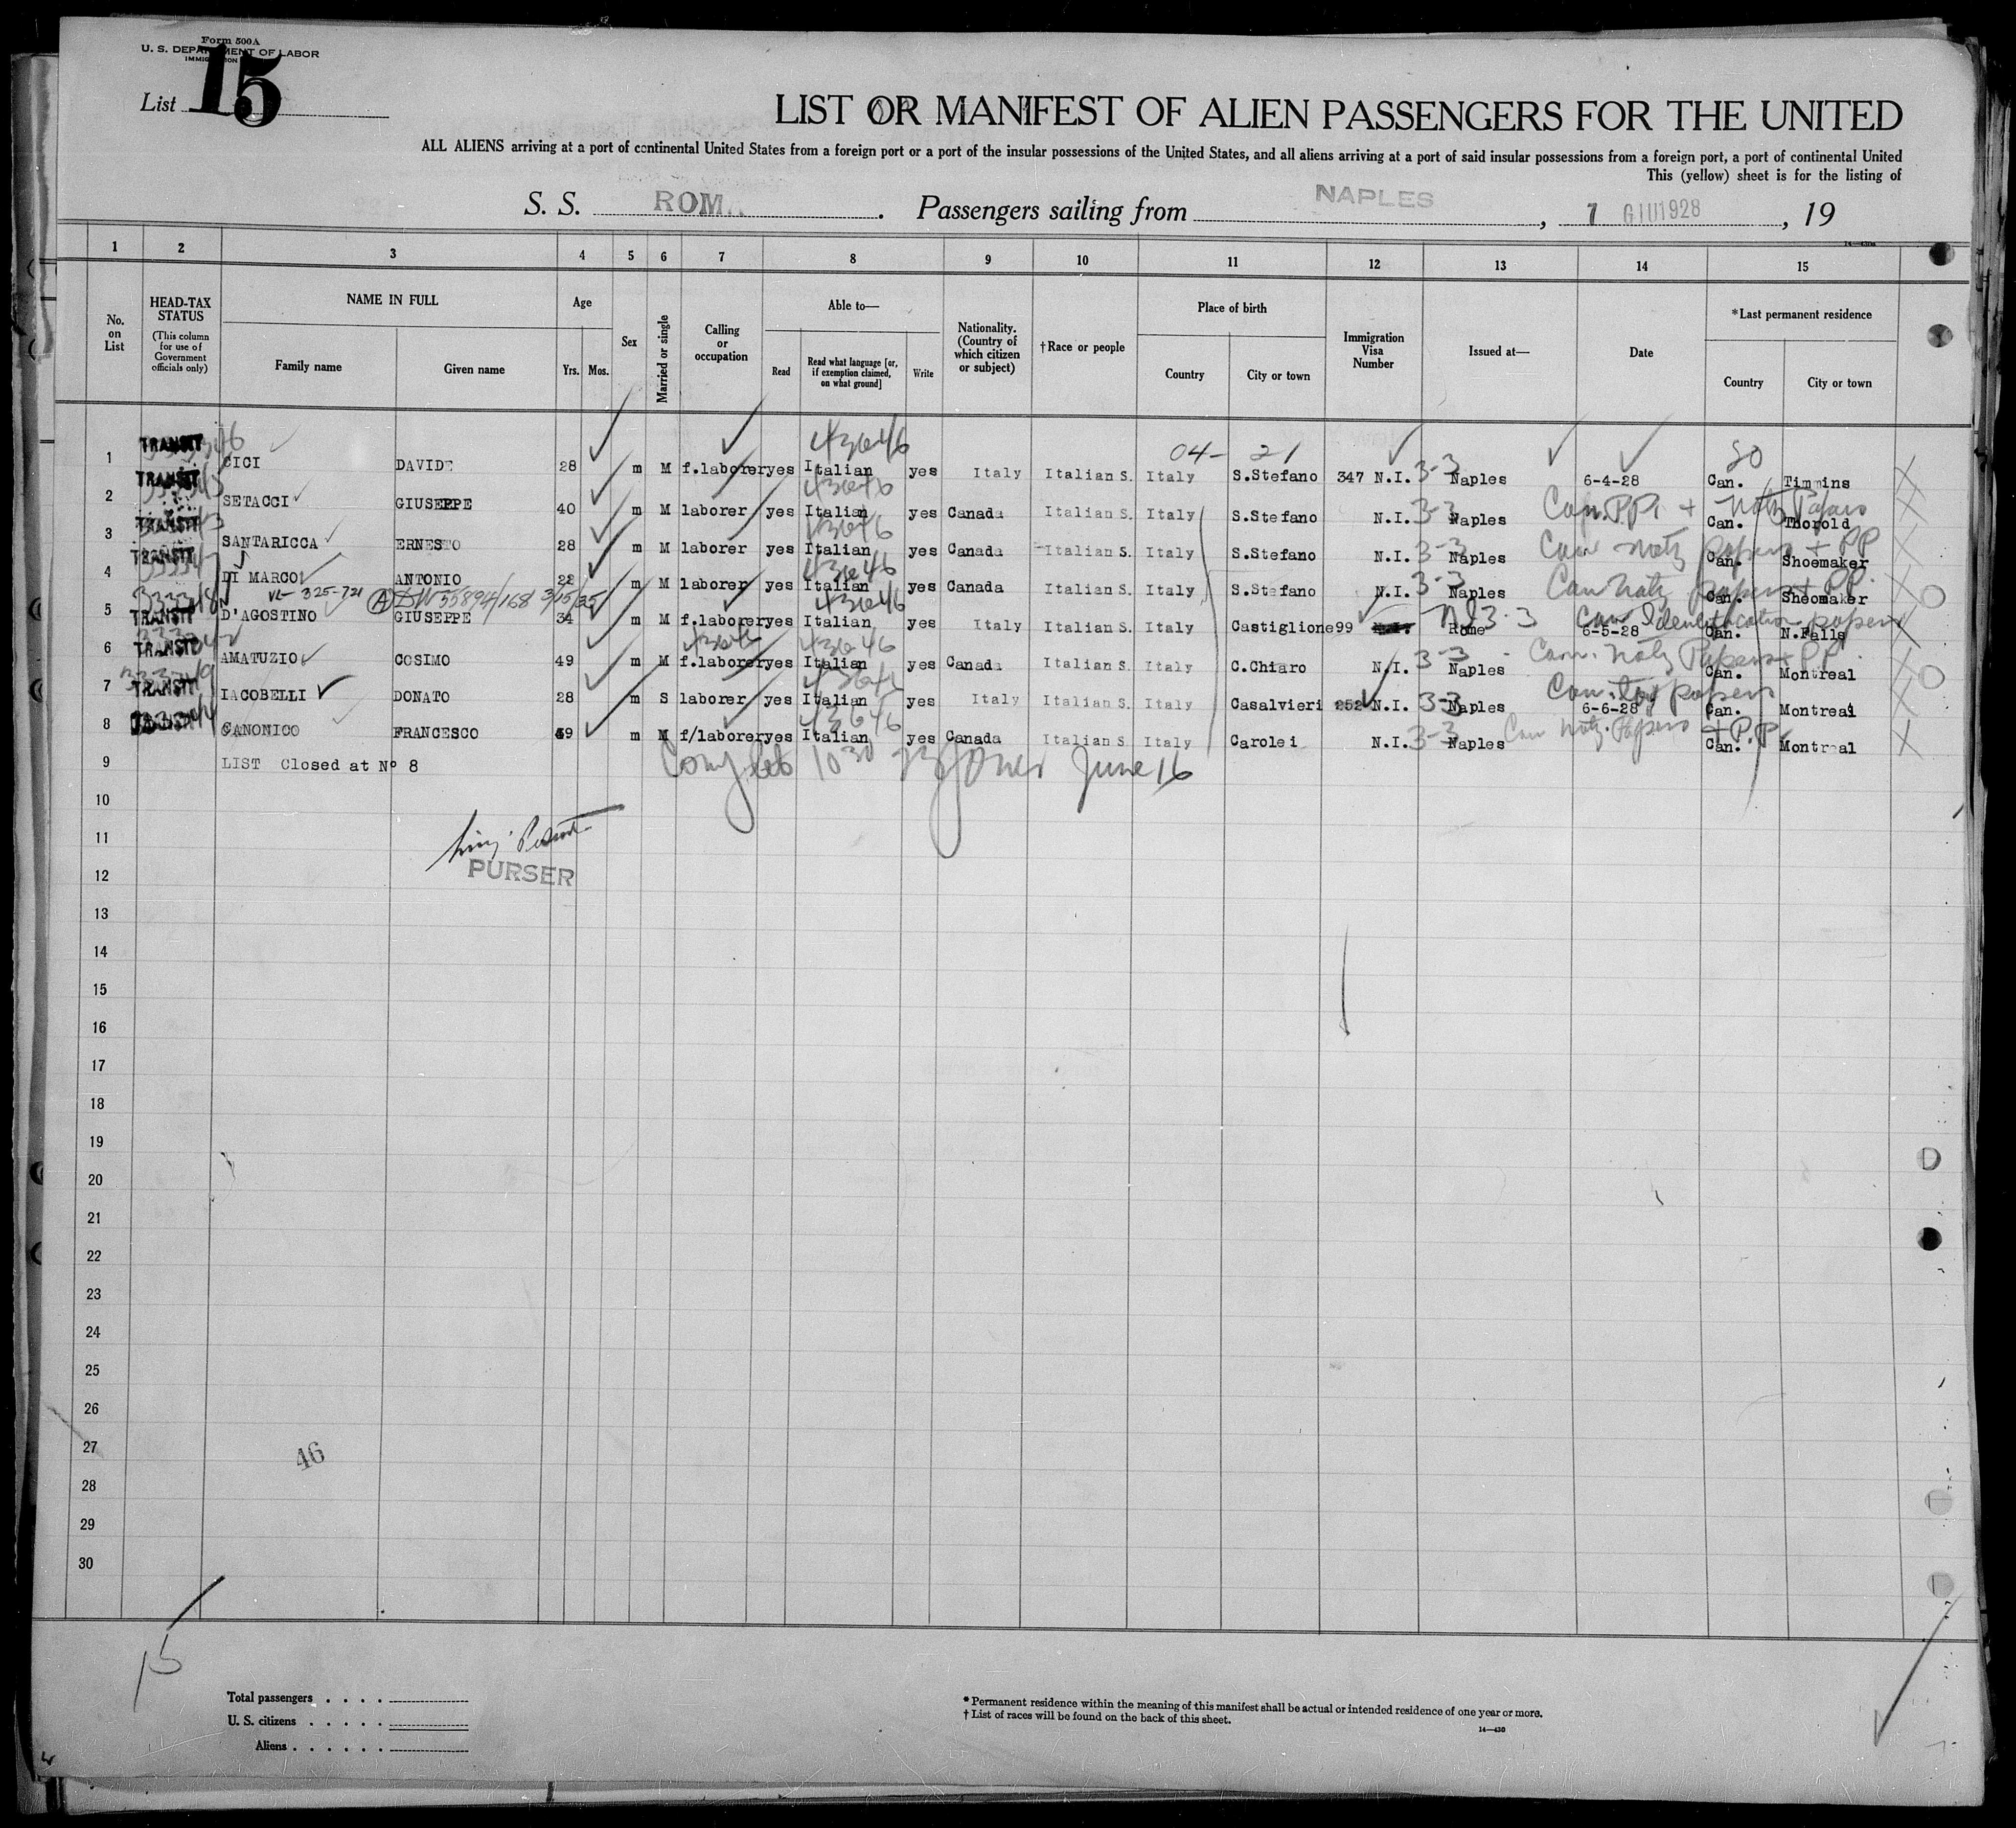 Form 500 A
U. S. DEPARTMENT OF LABOR
List 15
LIST OR MANIFEST OF ALIEN PASSENGERS FOR THE UNITED
ALL ALIENS arriving at a port of continental United States from a foreign port or a port of the insular possessions of the United States, and all aliens arriving at a port of said insular possessions from a foreign port, a port of continental United
This (yellow) sheet is for the listing of
S. S. ROMA. Passengers sailing from NAPLES, 7 GIU 1928, 19
14—430a
1 2 3 4 5 6 7 8 9 10 11 12 13 14 15
No. on List
HEAD-TAX STATUS (This column for use of Government officials only)
NAME IN FULL Family name Given name
Age Yrs. Mos.
Sex
Married or single
Calling or occupation
Able to— Read Read what language [or, if exemption claimed, on what ground] Write
Nationality. (Country of which citizen or subject)
†Race or people
Place of birth Country City or town
Immigration Visa Number
Issued at—
Date
*Last permanent residence Country City or town
43646 04- 21 80
1 TRANSIT CICI DAVIDE 28 m M f.laborer yes Italian yes Italy Italian S. Italy S.Stefano 347 N.I. 3-3 Naples 6-4-28 Can. Timmins
43646 Can. PP. + Natz Papers
2 TRANSIT SETACCI GIUSEPPE 40 m M laborer yes Italian yes Canada Italian S. Italy S.Stefano N.I. 3-3 Naples Can. Thorold
43646 Can Natz papers + PP
3 TRANSIT SANTARICCA ERNESTO 28 m M laborer yes Italian yes Canada Italian S. Italy S.Stefano N.I. 3-3 Naples Can. Shoemaker
43646 Can Natz papers + PP.
4 TRANSIT DI MARCO ANTONIO 28 m M laborer yes Italian yes Canada Italian S. Italy S.Stefano N.I. 3-3 Naples Can. Sheomaker
VL-325-721 A 55894/168 3/15/35 43646 NI 3-3 Can Identification papers
5 TRANSIT D'AGOSTINO GIUSEPPE 34 m M f.laborer yes Italian yes Italy Italian S. Italy Castiglione 99 Rome 6-5-28 Can. N.Falls
43646 Can. Natz Papers + PP.
6 TRANSIT AMATUZIO COSIMO 49 m M f.laborer yes Italian yes Canada Italian S. Italy C.Chiaro N.I. 3-3 Naples Can. Montreal
Can. papers
7 TRANSIT IACOBELLI DONATO 28 m S laborer yes Italian yes Italy Italian S. Italy Casalvieri 252 N.I. 3-3 Naples 6-6-28 Can. Montreal
43646 Can Natz. Papers + P.P.
8 CANONICO FRANCESCO 39 m M f/laborer yes Italian yes Canada Italian S Italy Carolei N.I. 3-3 Naples Can. Montreal
9 LIST Closed at Nº 8
June 16
10
11
PURSER
12
13
14
15
16
17
18
19
20
21
22
23
24
25
26
27
46
28
29
30
15
Total passengers
U. S. citizens
Aliens
* Permanent residence within the meaning of this manifest shall be actual or intended residence of one year or more.
† List of races will be found on the back of this sheet.
14—430